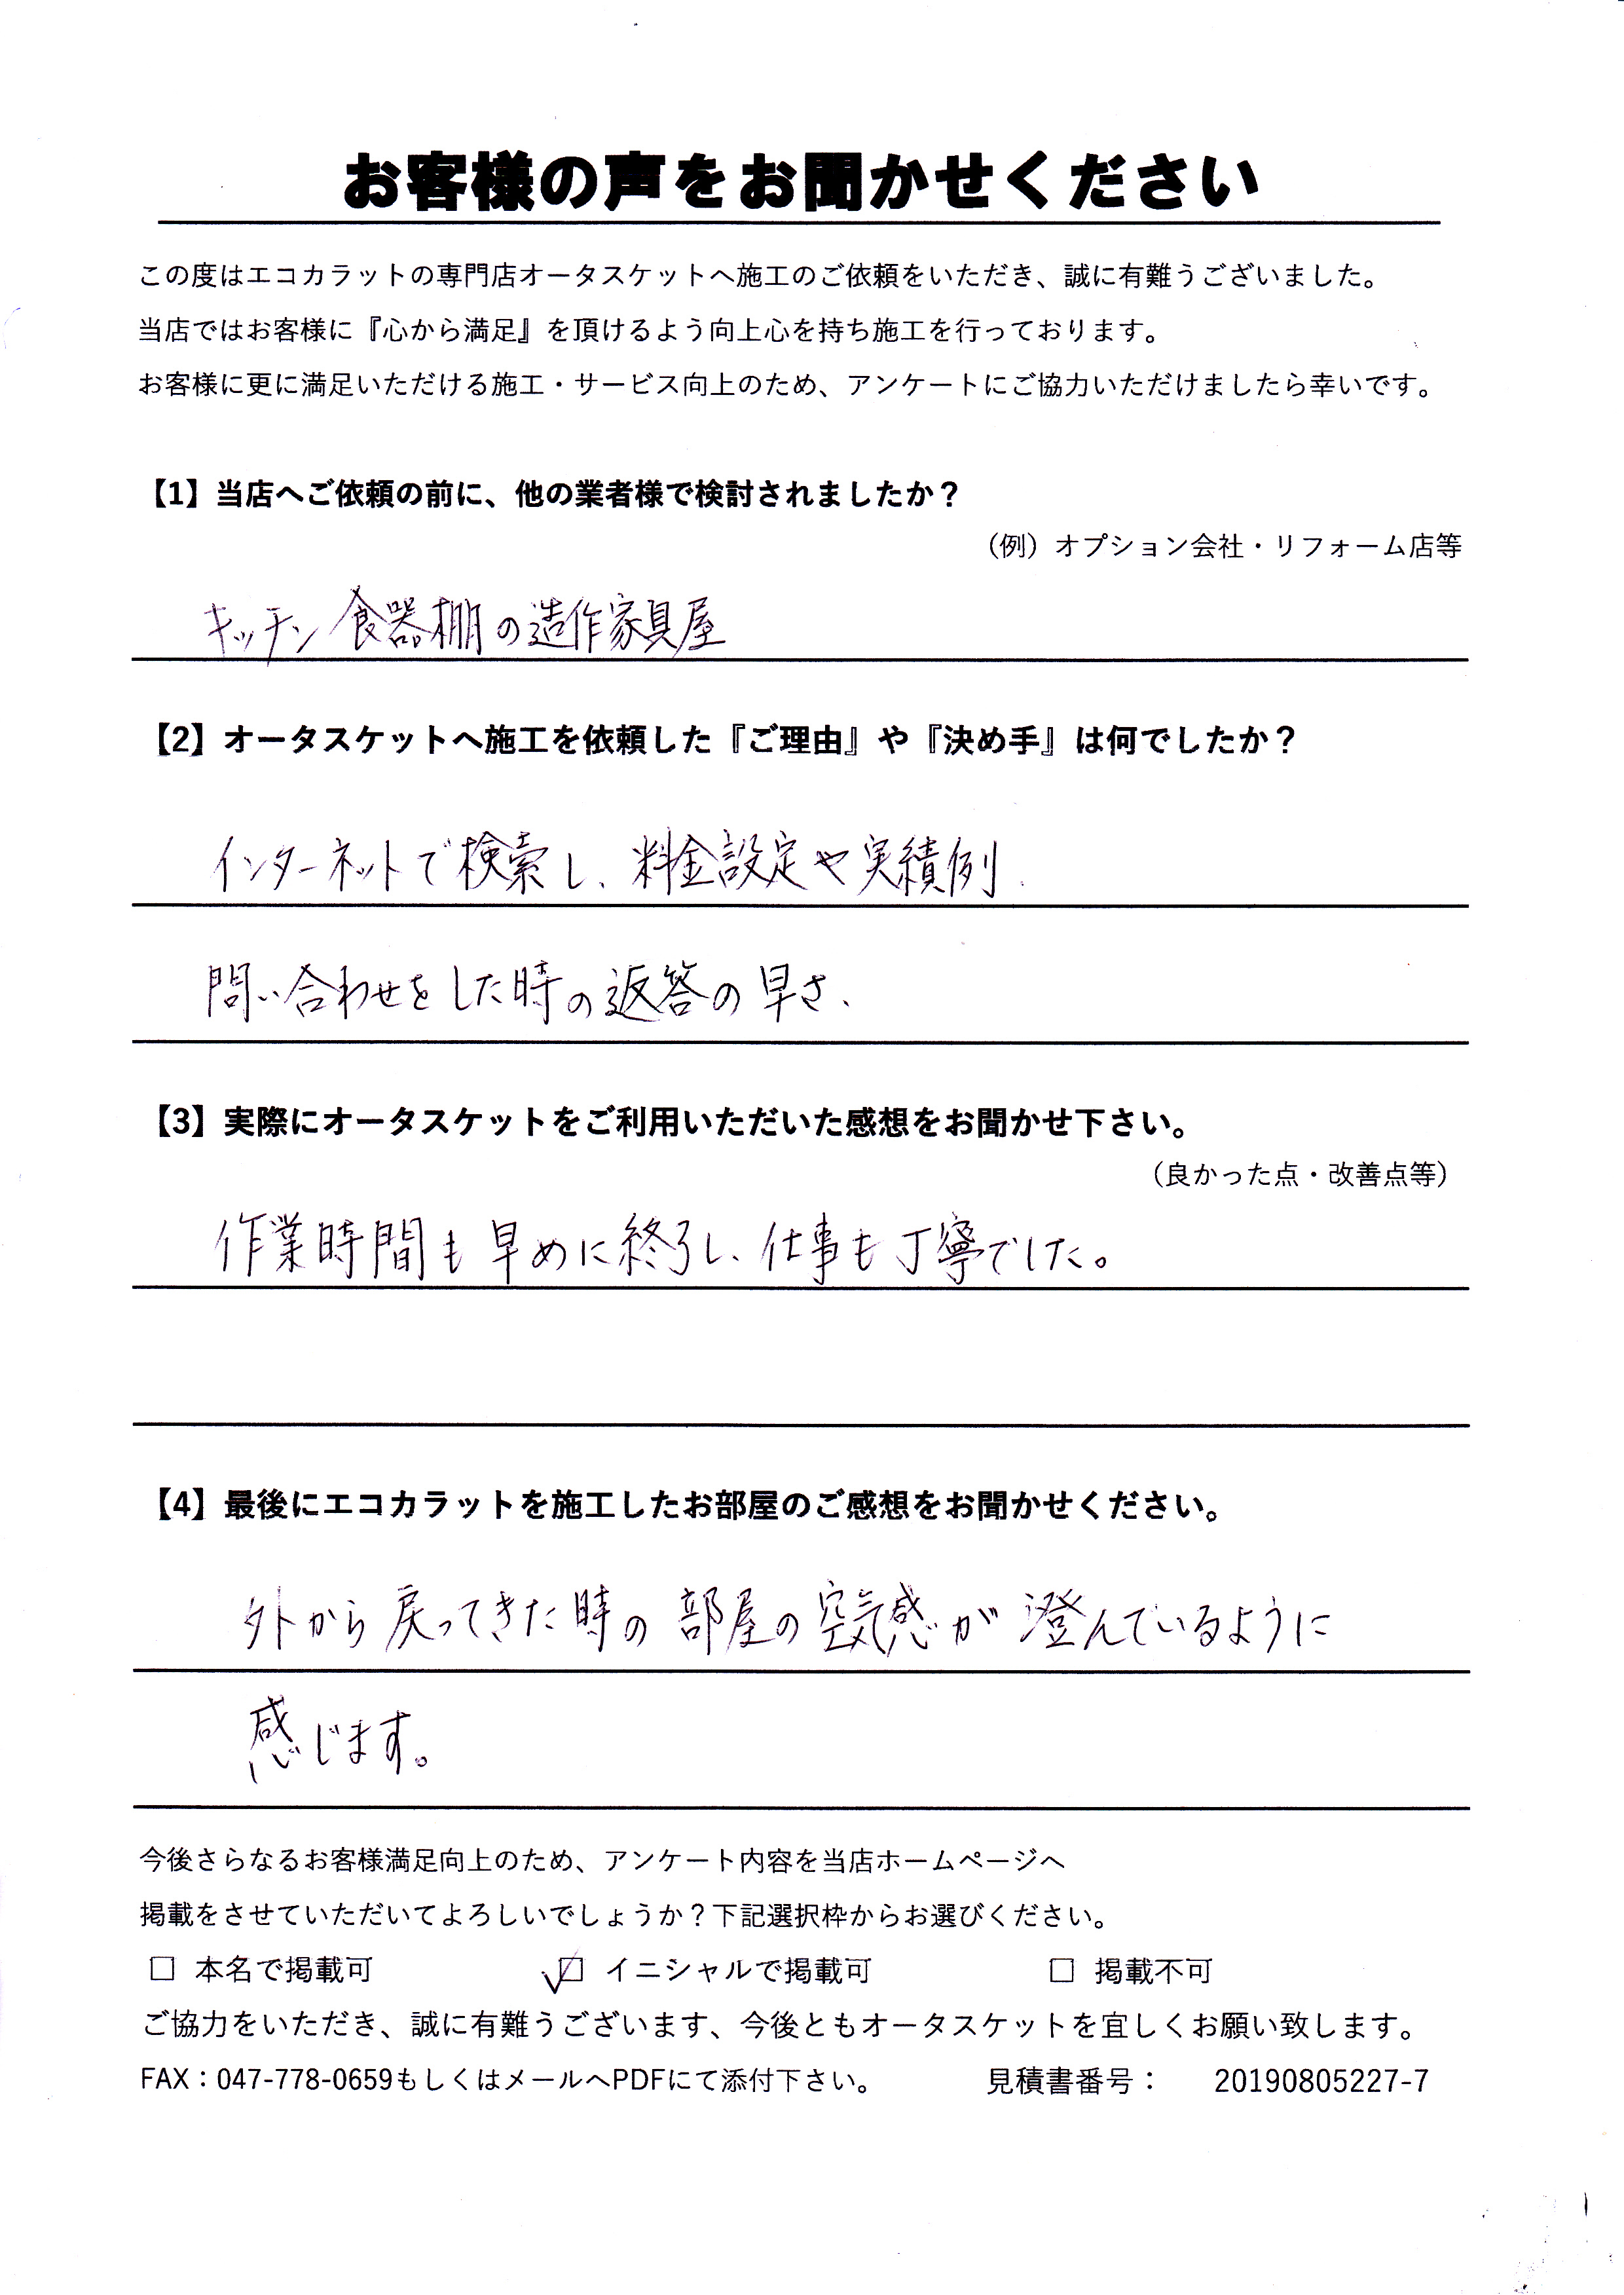 お客様の声をお聞かせください
この度はエコカラットの専門店オータスケットへ施工のご依頼をいただき、誠に有難うございました。
当店ではお客様に『心から満足』を頂けるよう向上心を持ち施工を行っております。
お客様に更に満足いただける施工・サービス向上のため、アンケートにご協力いただけましたら幸いです。
【1】当店へご依頼の前に、他の業者様で検討されましたか？
（例）オプション会社・リフォーム店等
キッチン食器棚の造作家具屋
【2】オータスケットへ施工を依頼した『ご理由』や『決め手』は何でしたか？
インターネットで検索し、料金設定や実績例
問い合わせをした時の返答の早さ、
【3】実際にオータスケットをご利用いただいた感想をお聞かせ下さい。
（良かった点・改善点等）
作業時間も早めに終了し、仕事も丁寧でした。
【4】最後にエコカラットを施工したお部屋のご感想をお聞かせください。
外から戻ってきた時の部屋の空気感が澄んでいるように
感じます。
今後さらなるお客様満足向上のため、アンケート内容を当店ホームページへ
掲載をさせていただいてよろしいでしょうか？下記選択枠からお選びください。
□ 本名で掲載可 ☑ イニシャルで掲載可 □ 掲載不可
ご協力をいただき、誠に有難うございます、今後ともオータスケットを宜しくお願い致します。
FAX：047-778-0659もしくはメールへPDFにて添付下さい。 見積書番号： 20190805227-7